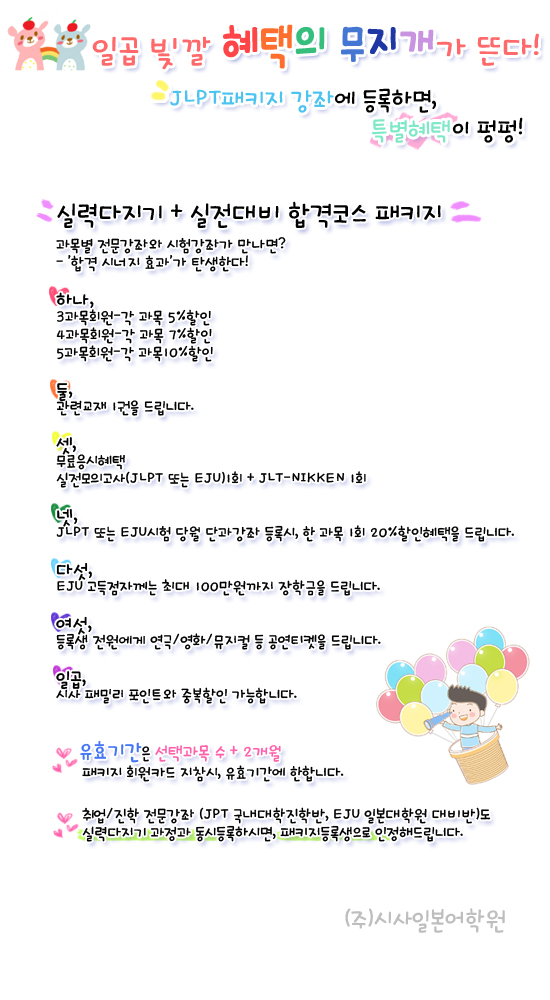 일곱 빛깔 혜택의 무지개가 뜬다!
JLPT패키지 강좌에 등록하면,
특별혜택이 펑펑!
실력다지기 + 실전대비 합격코스 패키지
과목별 전문강좌와 시험강좌가 만나면?
- '합격 시너지 효과'가 탄생한다!
하나,
3과목회원-각 과목 5%할인
4과목회원-각 과목 7%할인
5과목회원-각 과목10%할인
둘,
관련교재 1권을 드립니다.
셋,
무료응시혜택
실전모의고사(JLPT 또는 EJU)1회 + JLT-NIKKEN 1회
넷,
JLPT 또는 EJU시험 당월 단과강좌 등록시, 한 과목 1회 20%할인혜택을 드립니다.
다섯,
EJU 고득점자께는 최대 100만원까지 장학금을 드립니다.
여섯,
등록생 전원에게 연극/영화/뮤지컬 등 공연티켓을 드립니다.
일곱,
시사 패밀리 포인트와 중복할인 가능합니다.
유효기간은 선택과목 수 + 2개월
패키지 회원카드 지참시, 유효기간에 한합니다.
취업/진학 전문강좌 (JPT 국내대학진학반, EJU 일본대학원 대비반)도
실력다지기 과정과 동시등록하시면, 패키지등록생으로 인정해드립니다.
(주)시사일본어학원